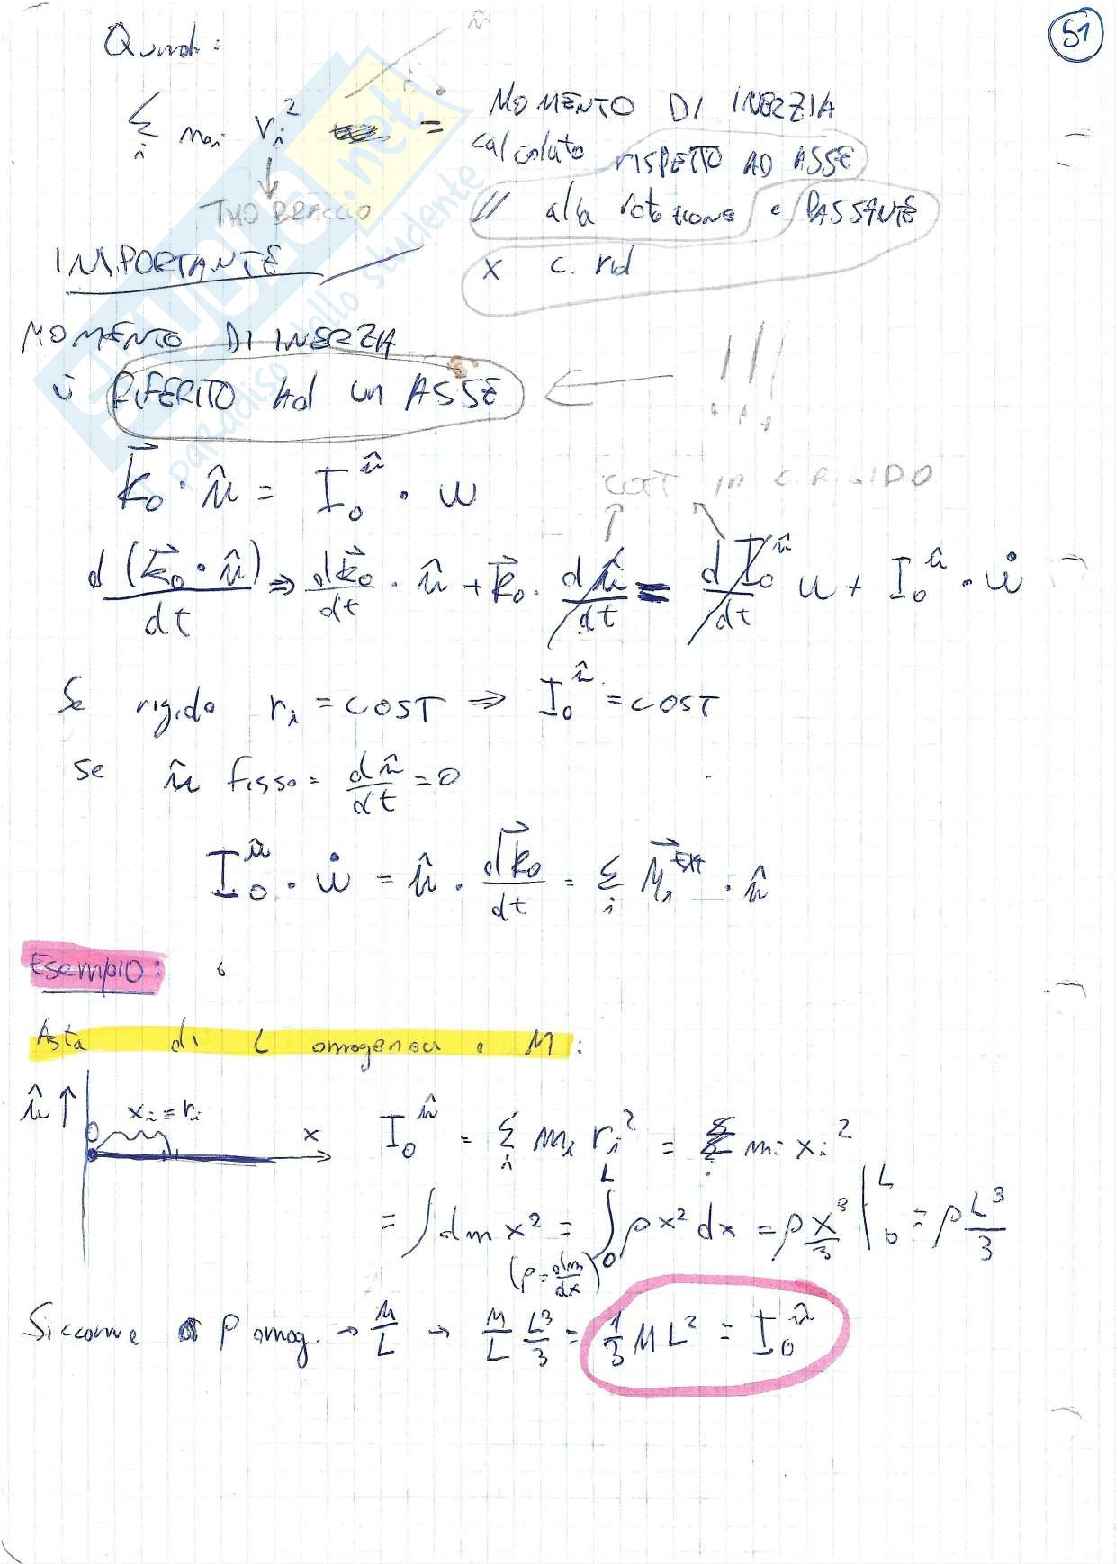 51
Quindi:
û
Σ_i m_i r_i² = MOMENTO DI INERZIA
calcolato RISPETTO AD ASSE
TUO BRACCIO // alla rotazione e PASSANTE
IMPORTANTE x c. rid
MOMENTO DI INERZIA
è RIFERITO Ad un ASSE
K⃗₀ · û = I₀^û · ω
COST IN C. RIGIDO
d(K⃗₀ · û)/dt => dK⃗₀/dt · û + K⃗₀ · dû/dt = dI₀^û/dt ω + I₀^û · ω̇
Se rigido r_i = COST => I₀^û = COST
se û fisso = dû/dt = 0
I₀^û · ω̇ = û · dK⃗₀/dt = Σ_i M⃗_i^EXT · û
Esempio:
Asta di L omogenea e M:
û ↑ x_i = r_i x O I₀^û = Σ_i m_i r_i² = Σ_i m_i x_i²
= ∫ dm x² = ∫₀^L ρ x² dx = ρ x³/3 |₀^L = ρ L³/3
(ρ = dm/dx)
Siccome ρ omog. → M/L → M/L L³/3 = 1/3 M L² = I₀^û